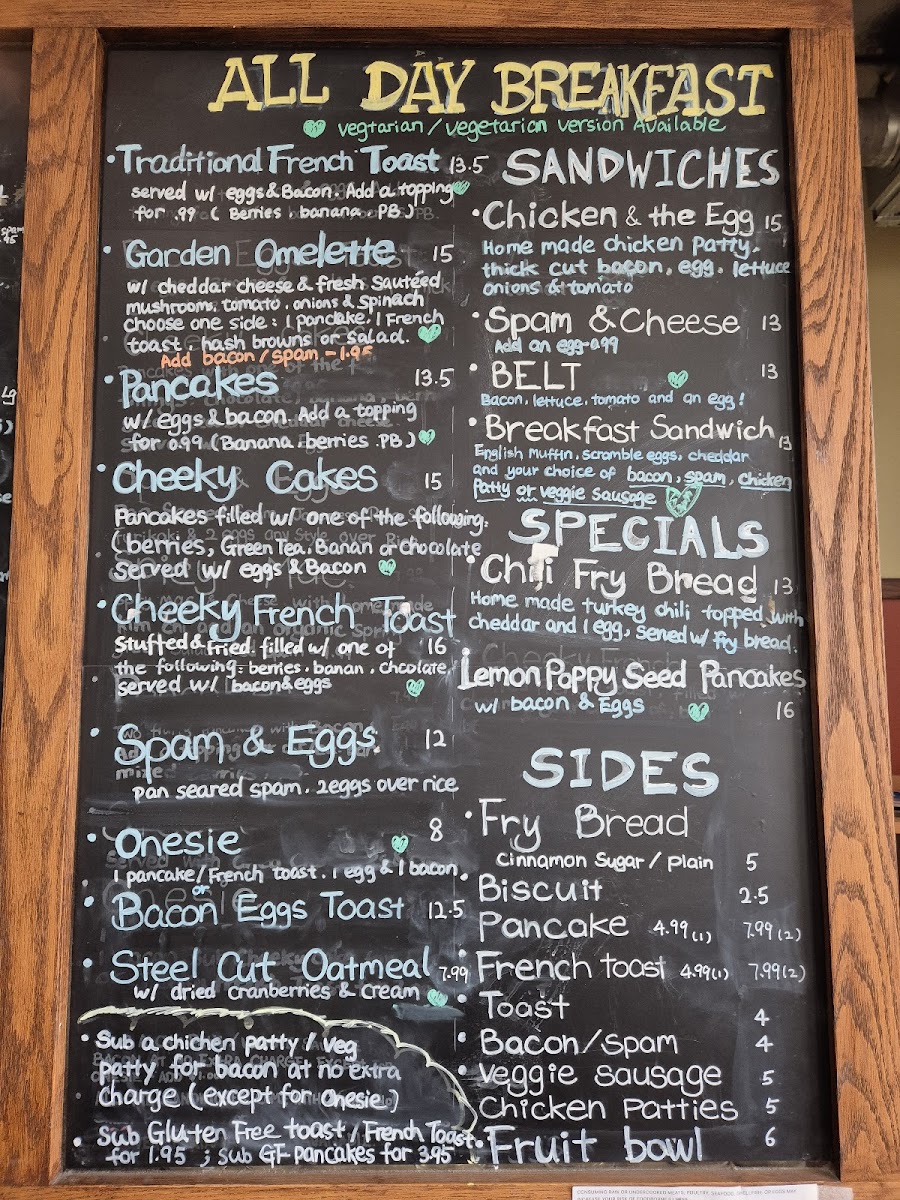 ALL DAY BREAKFAST
vegtarian/vegetarian version Available
•Traditional French Toast 13.5
served w/ eggs & Bacon. Add a topping
for .99 ( Berries banana PB)
• Garden Omelette 15
w/ cheddar cheese & fresh Sauteéd
mushrooms, tomato, onions & spinach
Choose one side: 1 pancake, 1 French
toast, hash browns or salad.
Add bacon/spam - 1.95
• Pancakes 13.5
w/ eggs & bacon. Add a topping
for 0.99 (Banana.berries.PB)
• Cheeky Cakes 15
Pancakes filled w/ one of the following:
(berries, Green Tea. Banan or chocolate
Served w/ eggs & Bacon
• Cheeky French Toast
Stuffed & Fried filled w/ one of 16
the following: berries, banan, chcolate
served w/ bacon & eggs
• Spam & Eggs 12
pan seared spam, 2 eggs over rice
• Onesie 8
1 pancake/French toast. 1 egg & 1 bacon.
or
• Bacon Eggs Toast 12.5
• Steel Cut Oatmeal 7.99
w/ dried cranberries & cream
• Sub a chichen patty / veg
patty for bacon at no extra
charge (except for Onesie)
• Sub Gluten Free toast / French Toast
for 1.95 ; sub GF pancakes for 3.95
SANDWICHES
• Chicken & the Egg 15
Home made chicken Patty,
thick cut bacon, egg, lettuce
onions & tomato
• Spam & Cheese 13
Add an egg-0.99
• BELT 13
Bacon, lettuce, tomato and an egg!
• Breakfast Sandwich 13
English Muffin, scramble eggs, cheddar
and your choice of bacon, spam, chicken
Patty or veggie sausage
SPECIALS
• Chili Fry Bread 13
Home made turkey chili topped with
cheddar and 1 egg, Served w/ fry bread.
Lemon Poppy Seed Pancakes
w/ bacon & Eggs 16
SIDES
• Fry Bread
Cinnamon Sugar / plain 5
Biscuit 2.5
Pancake 4.99 (1) 7.99 (2)
French toast 4.99 (1) 7.99 (2)
• Toast 4
• Bacon/Spam 4
• Veggie sausage 5
Chicken Patties 5
• Fruit bowl 6